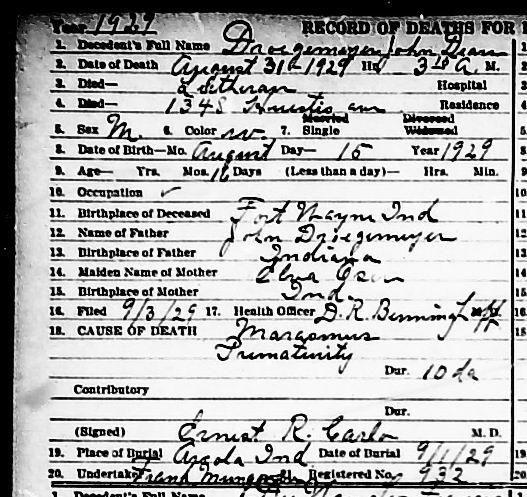 Year 1929 RECORD OF DEATHS FOR
1. Decedent's Full Name Droegemeyer, John Dean
2. Date of Death August 31st 1929 Hr. 3 A. M.
3. Died— Lutheran Hospital
4. Died— 1348 Huestis ave Residence
5. Sex M. 6. Color W. 7. Married Single Divorced Widowed
8. Date of Birth—Mo. August Day— 15 Year 1929
9. Age— Yrs. Mos. 16 Days (Less than a day)— Hrs. Min.
10. Occupation ✓
11. Birthplace of Deceased Fort Wayne Ind
12. Name of Father John Droegemeyer
13. Birthplace of Father Indiana
14. Maiden Name of Mother Elva
15. Birthplace of Mother Ind
16. Filed 9/3/29 17. Health Officer D. R. Benninghoff
18. CAUSE OF DEATH Marasmus
Prematurity
Dur. 10 da
Contributory
Dur.
(Signed) Ernest R. Carlo M. D.
19. Place of Burial Arcola Ind Date of Burial 9/1/29
20. Undertaker Frank Registered No. 932
1. Decedent's Full Name